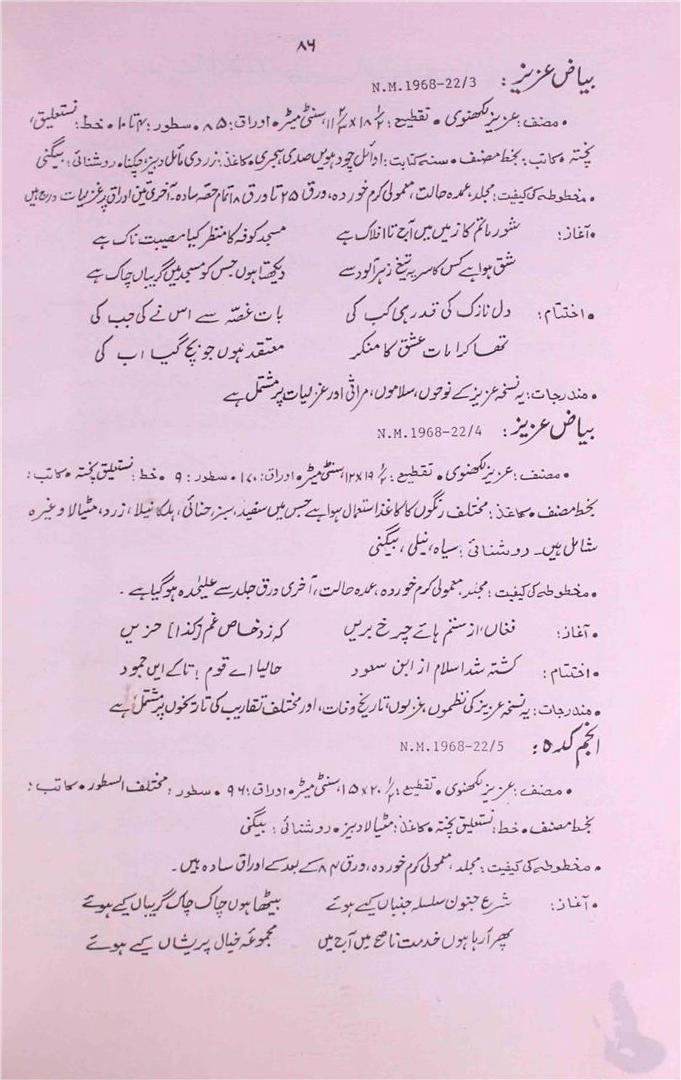 ۸۶
بیاض عزیز: N.M.1968-22/3
• مصنف: عزیز لکھنوی • تقطیع: ۱۸ ۱/۲ x ۱۱ ۲/۳ سنٹی میٹر • اوراق: ۸۵ • سطور: ۴ تا ۱۰ • خط: نستعلیق،
پختہ • کاتب: بخط مصنف • سنہ کتابت: اوائل چودہویں صدی ہجری • کاغذ: زردی مائل دبیز، چکنا • روشنائی: بیگنی
• مخطوطہ کی کیفیت: مجلد، عمدہ حالت، معمولی کرم خوردہ، ورق ۲۵ تا ورق ۸۱ تمام حصّہ سادہ۔ آخری تین اوراق پر غزلیات درج ہیں
• آغاز: شور ماتم کا زمیں میں آج تا افلاک ہے مسجد کوفہ کا منظر کیا مصیبت ناک ہے
شق ہوا ہے کس کا سر یہ تیغ زہر آلود سے دیکھتا ہوں جس کو مسجد میں گریباں چاک ہے
• اختتام: دل نازک کی قدر ہی کب کی بات غصّہ سے اس نے کی جب کی
تھا کرامات عشق کا منکر معتقد ہوں جو بچ گیا اب کی
• مندرجات: یہ نسخہ عزیز کے نوحوں، سلاموں، مراثی اور غزلیات پر مشتمل ہے
بیاض عزیز: N.M.1968-22/4
• مصنف: عزیز لکھنوی • تقطیع: ۱۹ ۱/۲ x ۱۲ سنٹی میٹر • اوراق: ۱۷۰ • سطور: ۹ • خط: نستعلیق پختہ • کاتب:
بخط مصنف • کاغذ: مختلف رنگوں کا کاغذ استعمال ہوا ہے جس میں سفید، سبز، حنائی، ہلکا نیلا، زرد، مٹیالا وغیرہ
شامل ہیں۔ روشنائی: سیاہ، نیلی، بیگنی
• مخطوطہ کی کیفیت: مجلد، معمولی کرم خوردہ، عمدہ حالت، آخری ورق جلد سے علیٰحدہ ہو گیا ہے۔
• آغاز: فغاں، از ستم ہائے چرخ بریں کہ زد خاص غم [کذا] حزیں
• اختتام: کشتہ شد اسلام از ابن سعود حالیا اے قوم! تا کے ایں جمود
• مندرجات: یہ نسخہ عزیز کی نظموں، غزلوں، تاریخ وفات، اور مختلف تقاریب کی تاریخوں پر مشتمل ہے
انجم کدہ: N.M.1968-22/5
• مصنف: عزیز لکھنوی • تقطیع: ۲۰ ۱/۲ x ۱۵ سنٹی میٹر • اوراق: ۹۶ • سطور: مختلف السطور • کاتب:
بخط مصنف • خط: نستعلیق پختہ • کاغذ: مٹیالا دبیز • روشنائی: بیگنی
• مخطوطہ کی کیفیت: مجلد، معمولی کرم خوردہ، ورق ۸۴ کے بعد کے اوراق سادہ ہیں۔
• آغاز: شرع جنون سلسلہ جنباں کیے ہوئے بیٹھا ہوں چاک چاک گریباں کیے ہوئے
پھر آرہا ہوں خدمت ناصح میں آج میں مجموعۂ خیال پریشاں کیے ہوئے